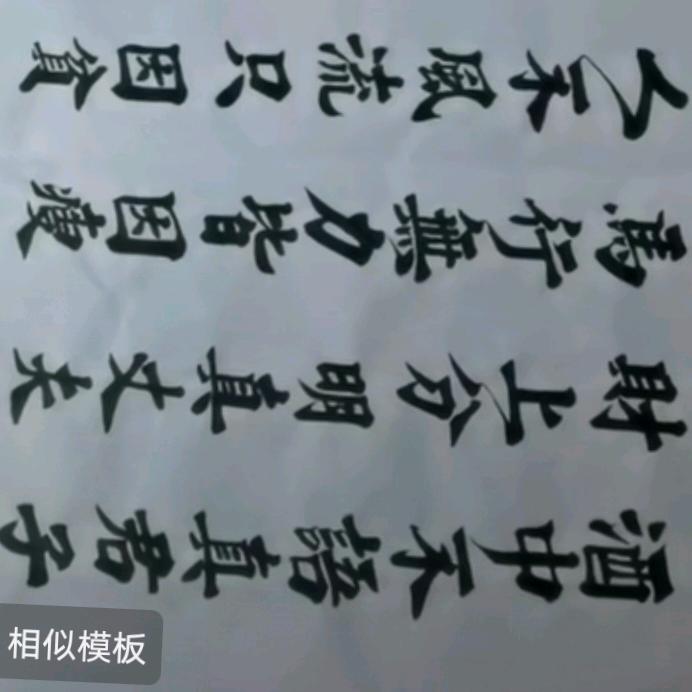 酒中不語真君子
財上分明真丈夫
馬行無力皆因瘦
人不風流只因貧
相似模板